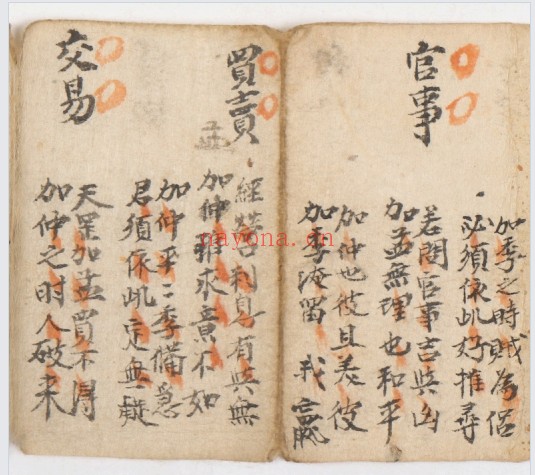 加季之時賊為侶
必須依此好推尋
官事
若問官事吉與凶
加孟無理也和平
加仲也彼且羙彼
加季淹留我贏
買賣
經營利息有與無
加仲雖求意不如
加仲平二季備急
君須依此定無疑
交易
天罡加孟買不得
加仲之时人破来
nayona.cn